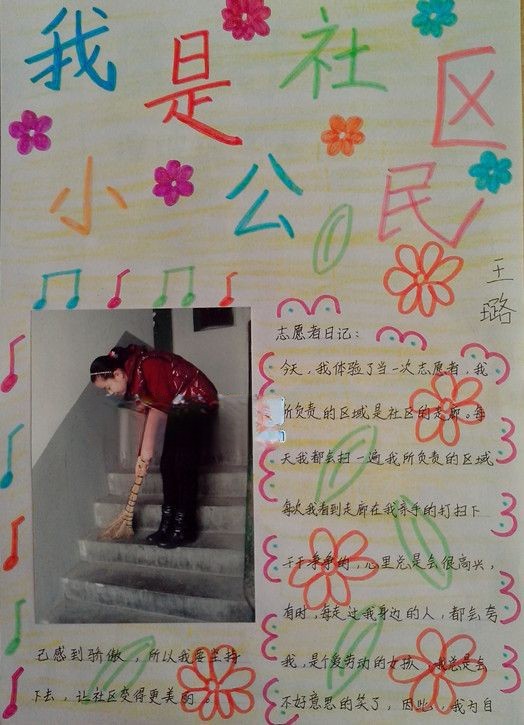 我是社区
小公民
王璐
志愿者日记：
今天，我体验了当一次志愿者，我
所负责的区域是社区的走廊。每
天我都会扫一遍我所负责的区域
每次我看到走廊在我亲手的打扫下
干干净净的，心里总是会很高兴，
有时，每走过我身边的人，都会夸
我，是个爱劳动的女孩，我总是会
不好意思的笑了，因此，我为自
己感到骄傲，所以我要坚持
下去，让社区变得更美丽。